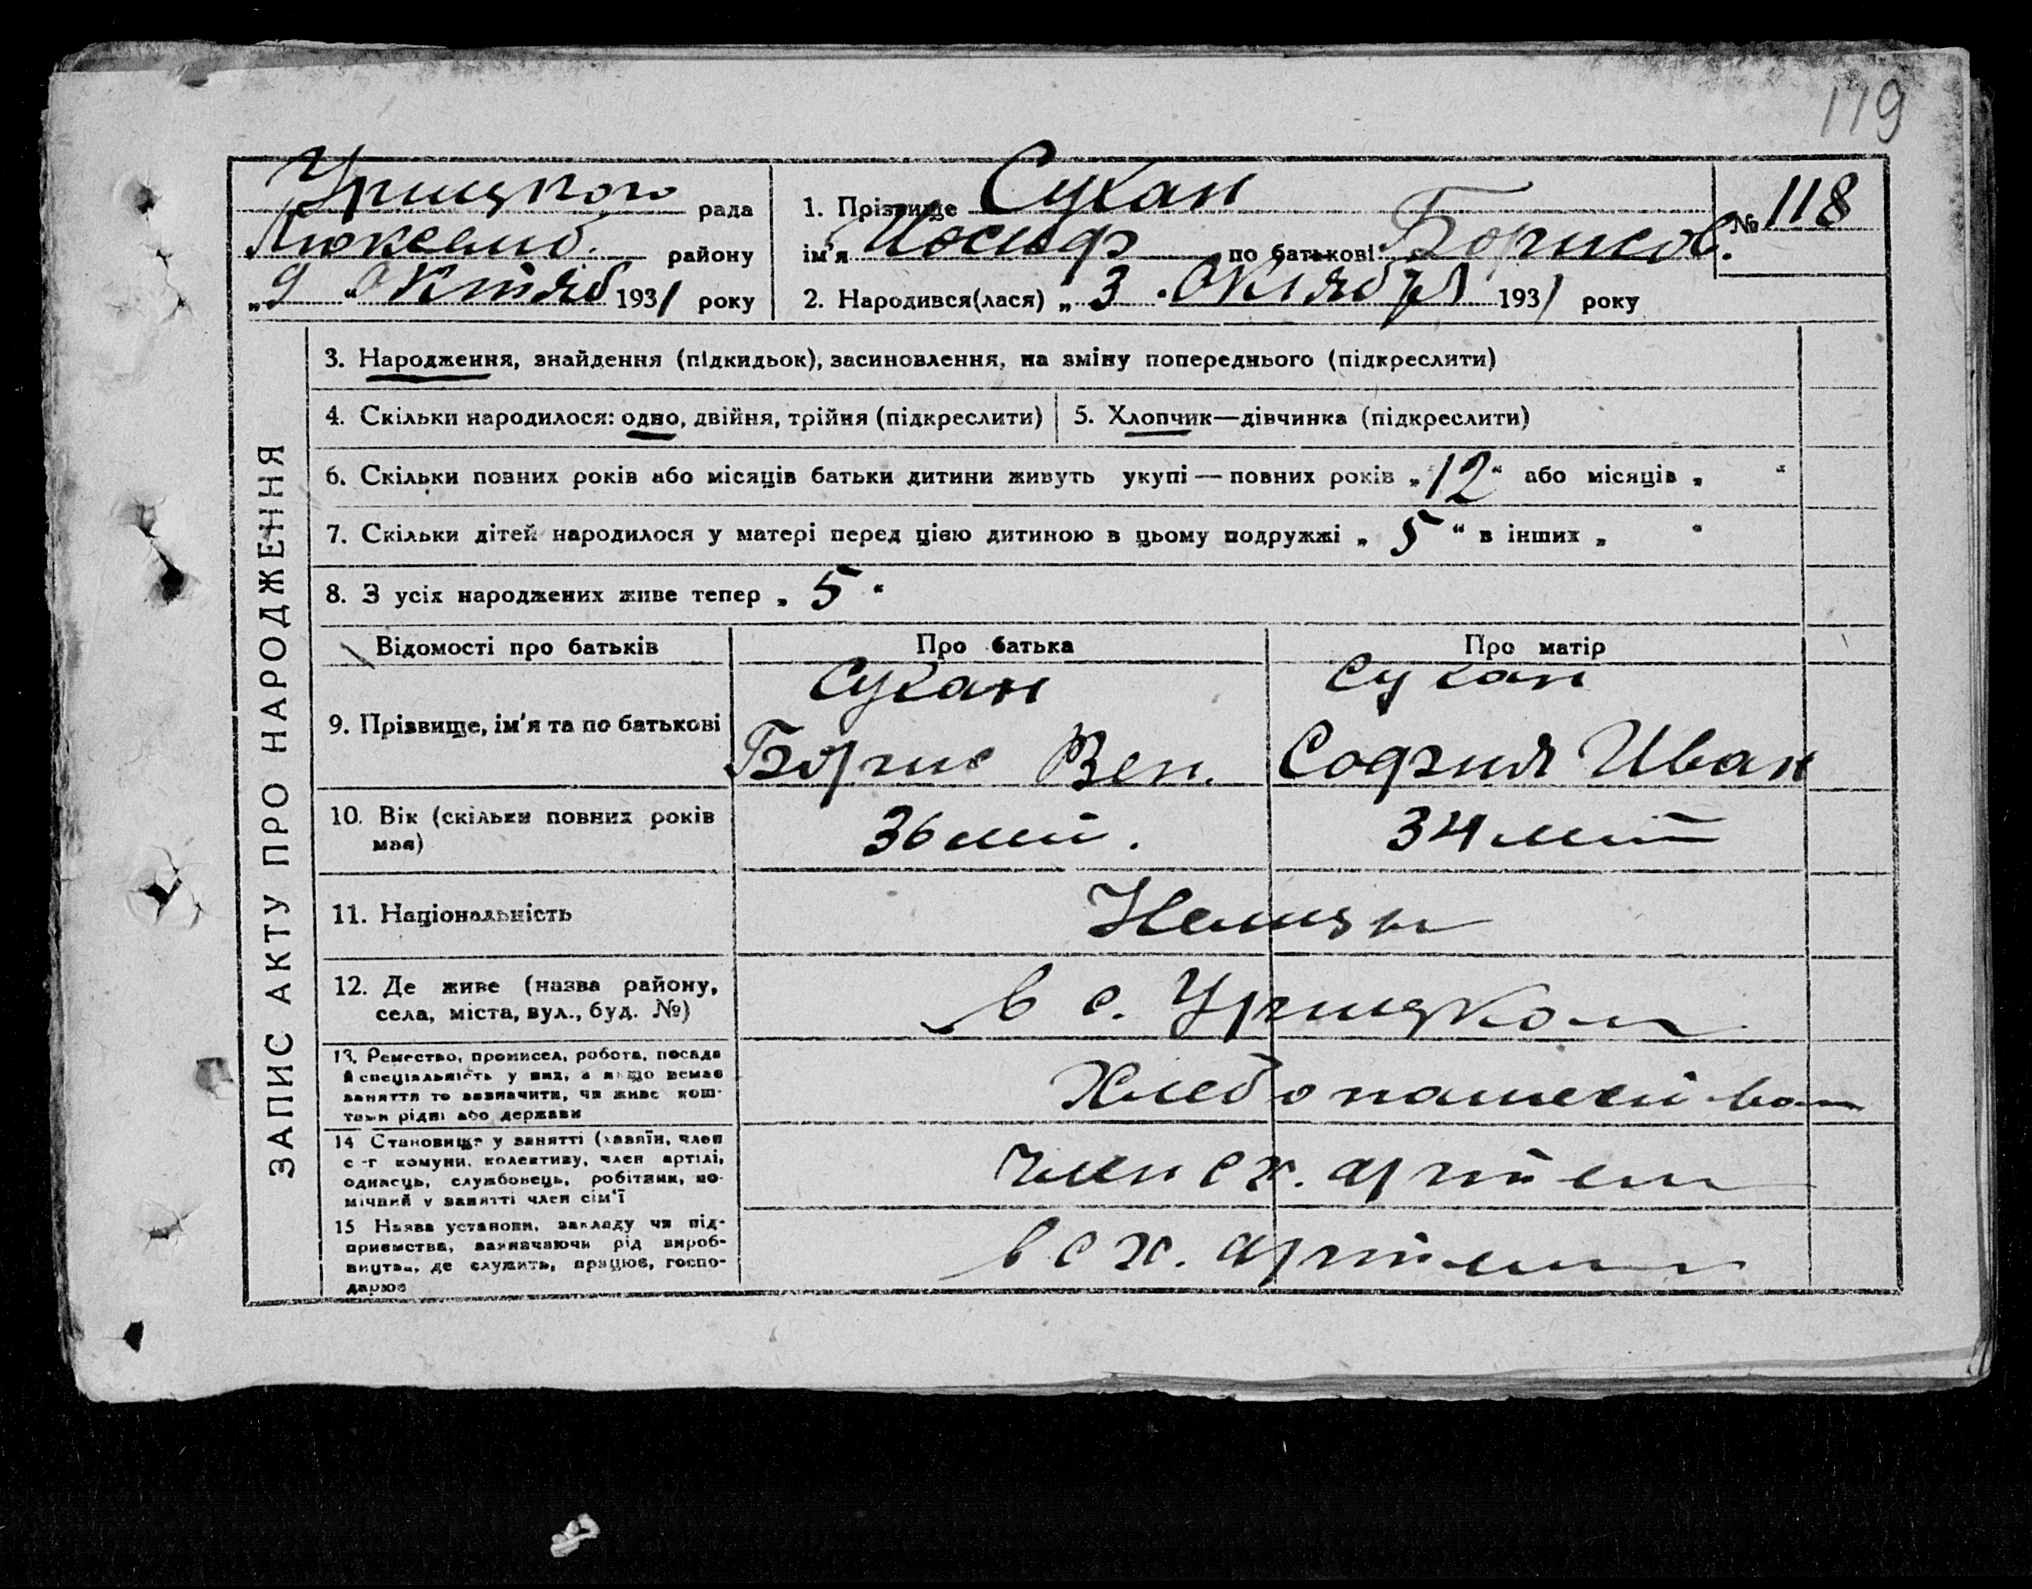 119
Урицкого рада
Люксемб. району
„9" Октяб 1931 року
1. Прізвище Сукан
ім'я Иосиф по батькові Борисов.
№ 118
2. Народився(лася) „3" Октября 1931 року
ЗАПИС АКТУ ПРО НАРОДЖЕННЯ
3. Народження, знайдення (підкидьок), засиновлення, на зміну попереднього (підкреслити)
4. Скільки народилося: одно, двійня, трійня (підкреслити)
5. Хлопчик—дівчинка (підкреслити)
6. Скільки повних років або місяців батьки дитини живуть укупі — повних років „12" або місяців „ "
7. Скільки дітей народилося у матері перед цією дитиною в цьому подружжі „5" в інших „ "
8. З усіх народжених живе тепер „5"
Відомості про батьків
Про батька
Про матір
9. Прізвище, ім'я та по батькові
Сукан
Борис Вен.
Сукан
София Иван
10. Вік (скільки повних років
має)
36 лет.
34 лет
11. Національність
Немцы
12. Де живе (назва району,
села, міста, вул., буд. №)
в с. Урицком
13. Ремество, промисел, робота, посада
й спеціяльність у них, а якщо немає
заняття то зазначити, чи живе кош-
тами рідні або держави
Хлебопашеством
14 Становище у занятті (хазяїн, член
с-г комуни, колективу, член артілі,
одинець, службовець, робітник, по-
мічний у занятті член сім'ї
член с х. артели
15 Назва установи, закладу чи під-
приємства, зазначаючи рід вироб-
ництва, де служить, працює, госпо-
дарює
в с х. артели